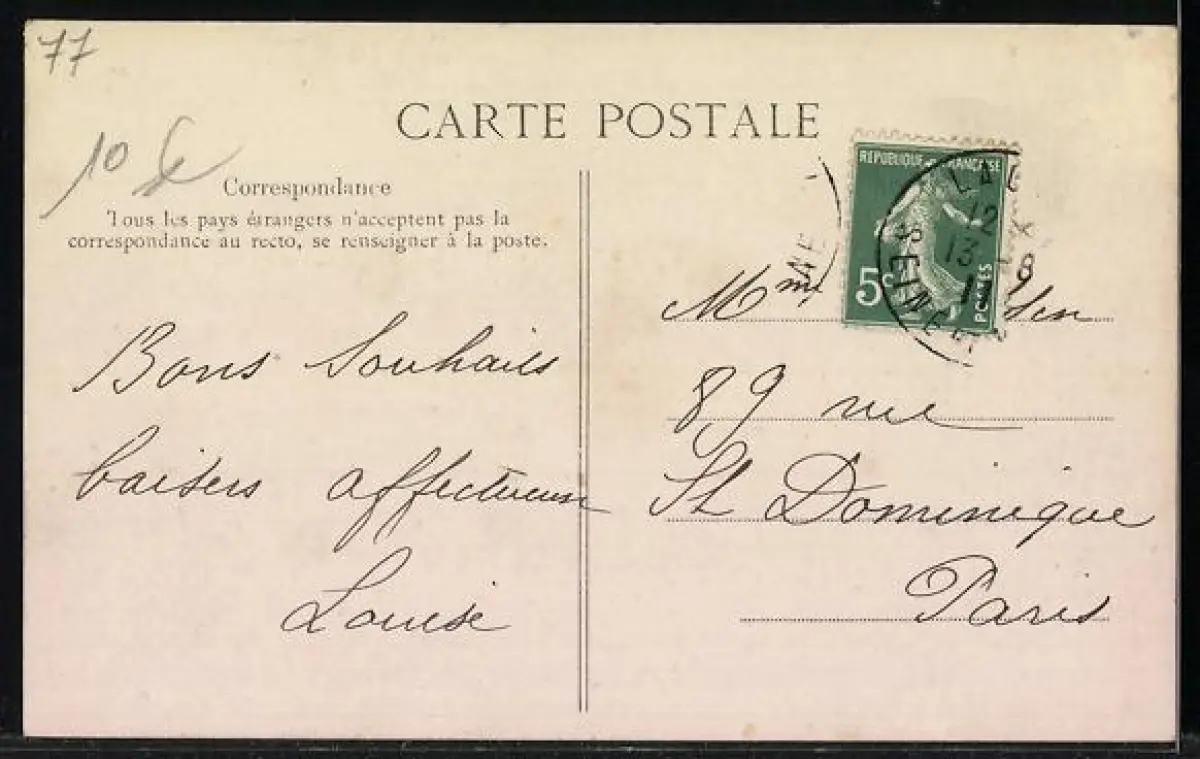 77
10
CARTE POSTALE
Correspondance
Tous les pays étrangers n'acceptent pas la
correspondance au recto, se renseigner à la poste.
REPUBLIQUE FRANÇAISE
5c
POSTES
12
13 8
SEINE
Mme
Bons Souhaits
baisers affectueux
Louise
89 rue
St Dominique
Paris